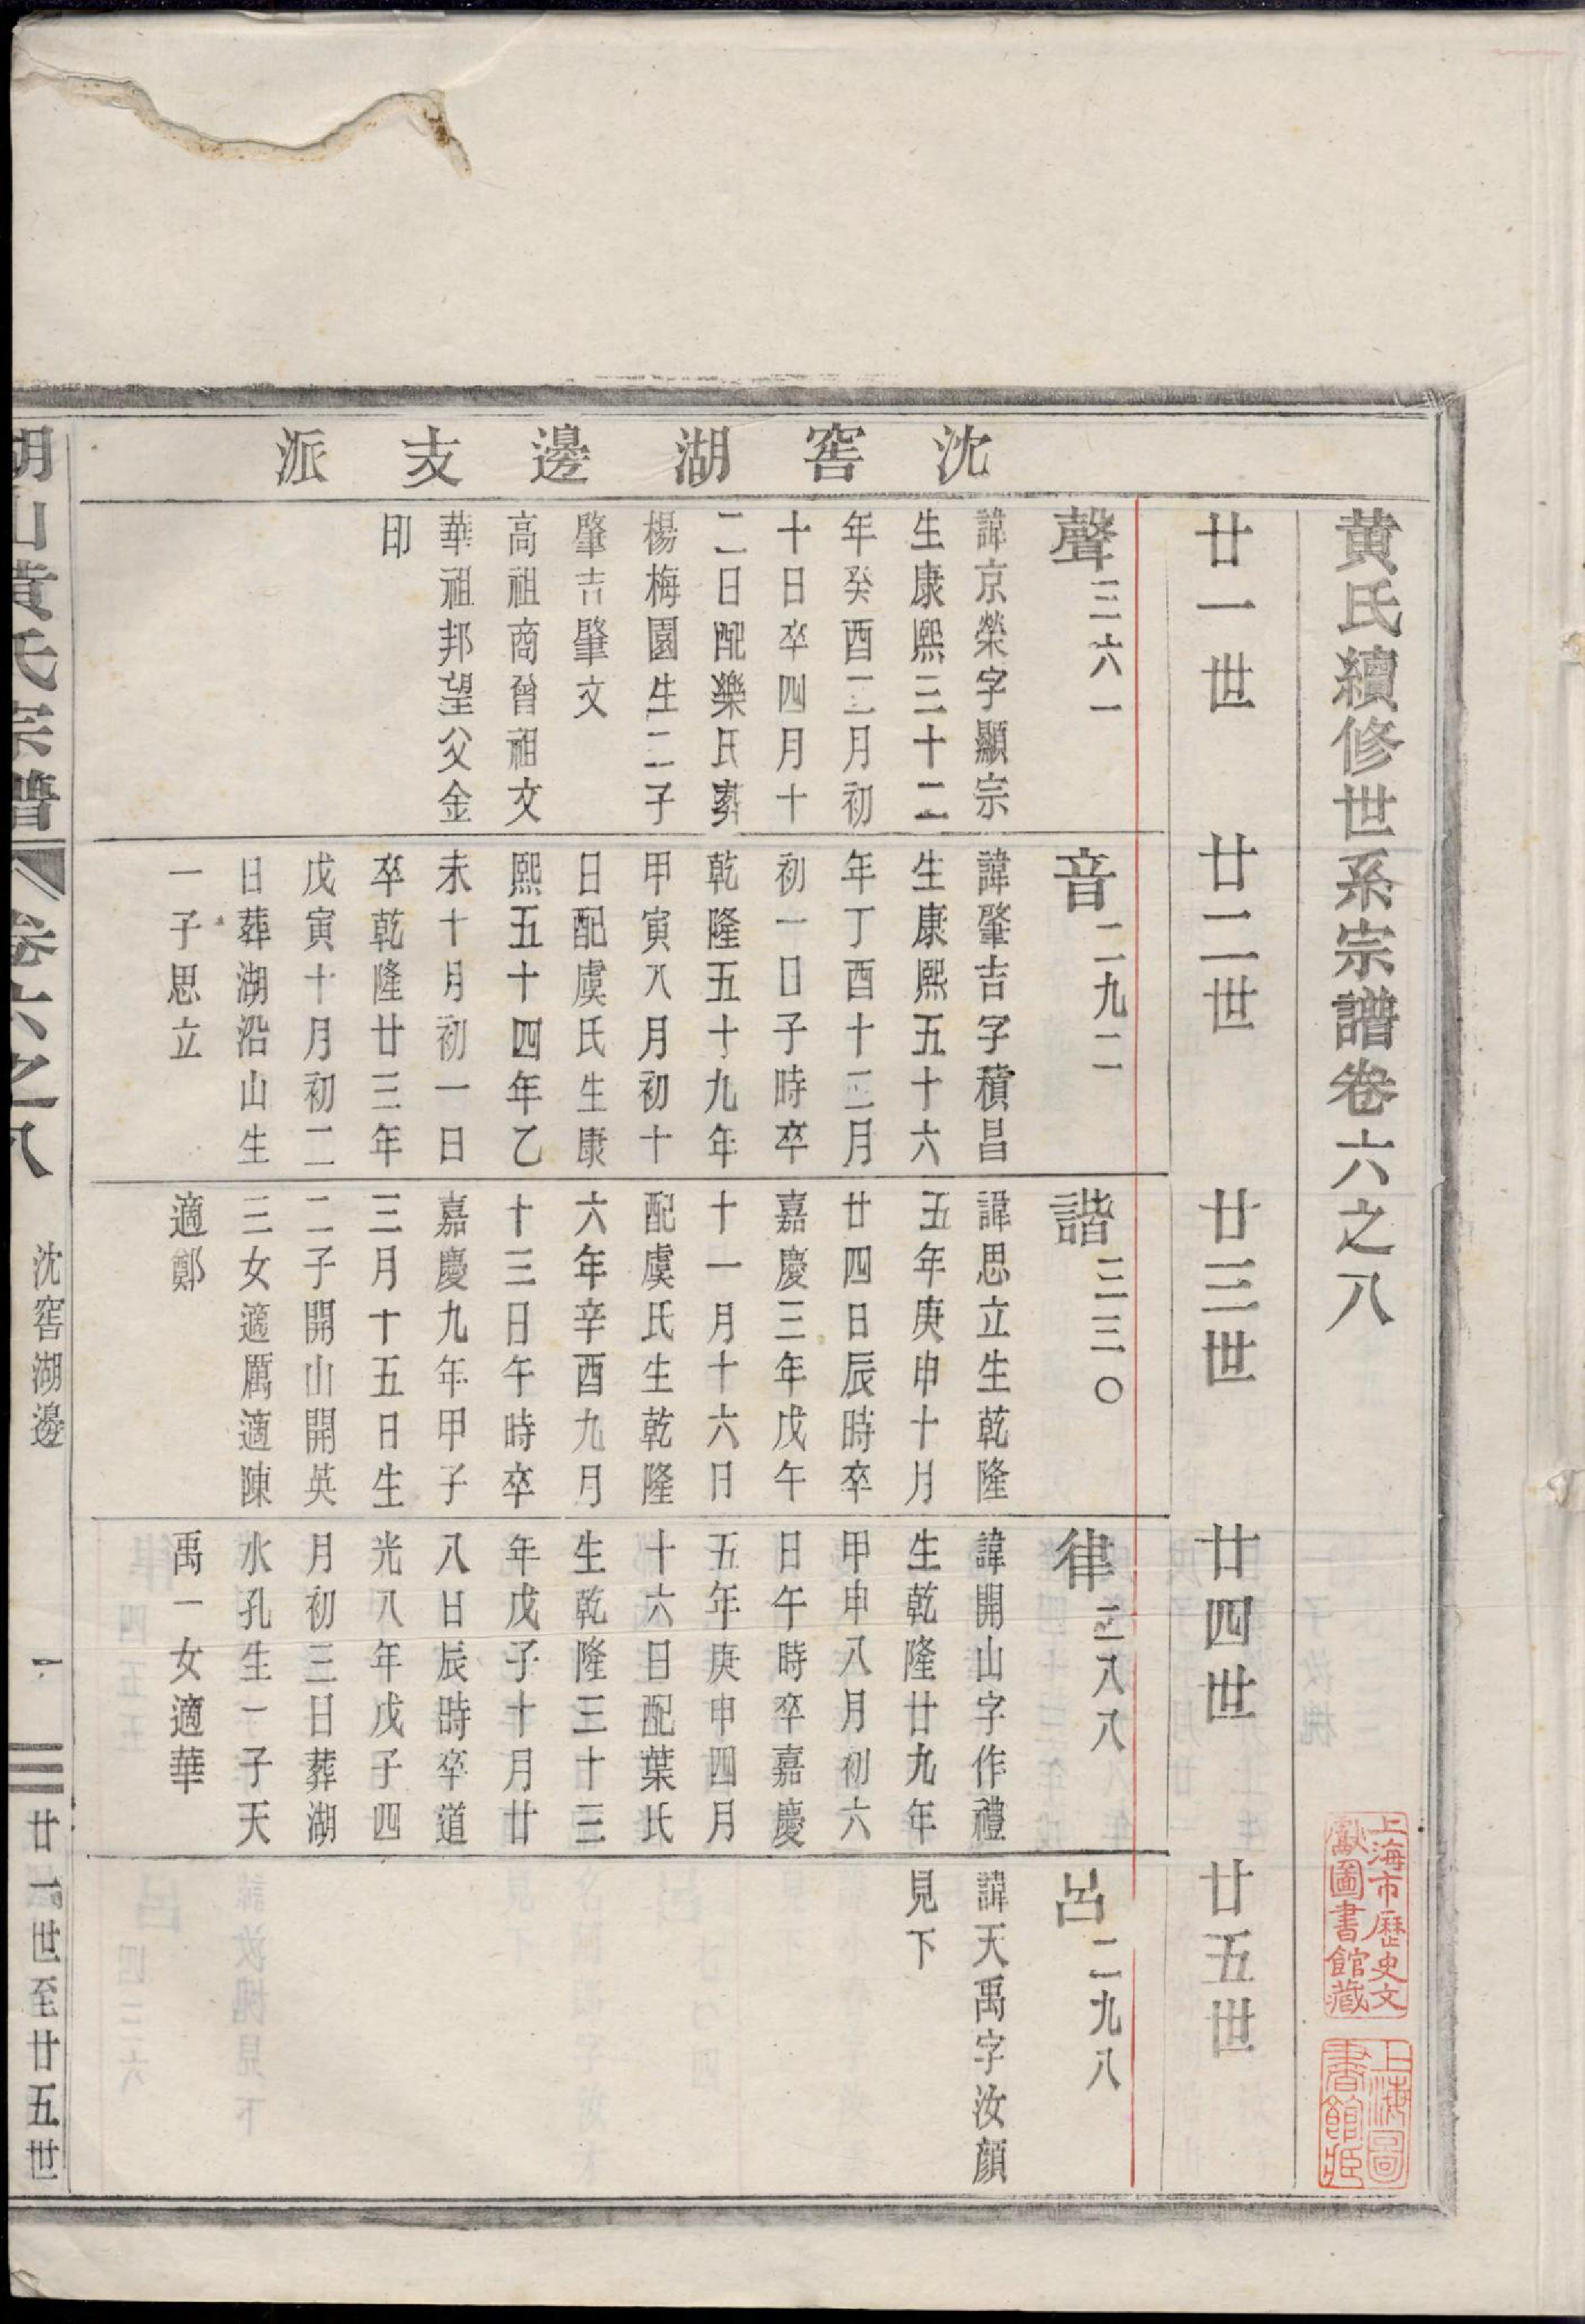 黄氏續修世系宗譜卷六之八
上海市歷史文
獻圖書館藏
上海圖
書館藏
廿一世
廿二世
廿三世
廿四世
廿五世
沈窖湖邊支派
聲三六一
諱京榮字顯宗
生康熙三十二
年癸酉二月初
十日卒四月十
二日配樂氏葬
楊梅園生二子
肇吉肇文
高祖商曾祖文
華祖邦望父金
印
音二九二
諱肇吉字積昌
生康熙五十六
年丁酉十二月
初一日子時卒
乾隆五十九年
甲寅八月初十
日配虞氏生康
熙五十四年乙
未十月初一日
卒乾隆廿三年
戊寅十月初二
日葬湖沿山生
一子思立
諧三三〇
諱思立生乾隆
五年庚申十月
廿四日辰時卒
嘉慶三年戊午
十一月十六日
配虞氏生乾隆
六年辛酉九月
十三日午時卒
嘉慶九年甲子
三月十五日生
二子開山開英
三女適厲適陳
適鄭
律二八八
諱開山字作禮
生乾隆廿九年
甲申八月初六
日午時卒嘉慶
五年庚申四月
十六日配葉氏
生乾隆三十三
年戊子十月廿
八日辰時卒道
光八年戊子四
月初三日葬湖
水孔生一子天
禹一女適華
呂二九八
諱天禹字汝顏
見下
胡山黃氏宗譜 卷六之八 沈窖湖邊 一 廿一世至廿五世